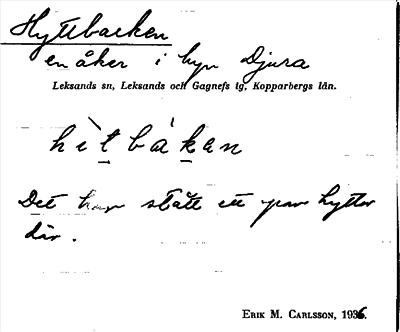 Hyttbacken
en åker i byn Djura
Leksands sn, Leksands och Gagnefs tg, Kopparbergs län.
hìtbákan
Det har stått ett par hyttor
där.
ERIK M. CARLSSON, 1936.